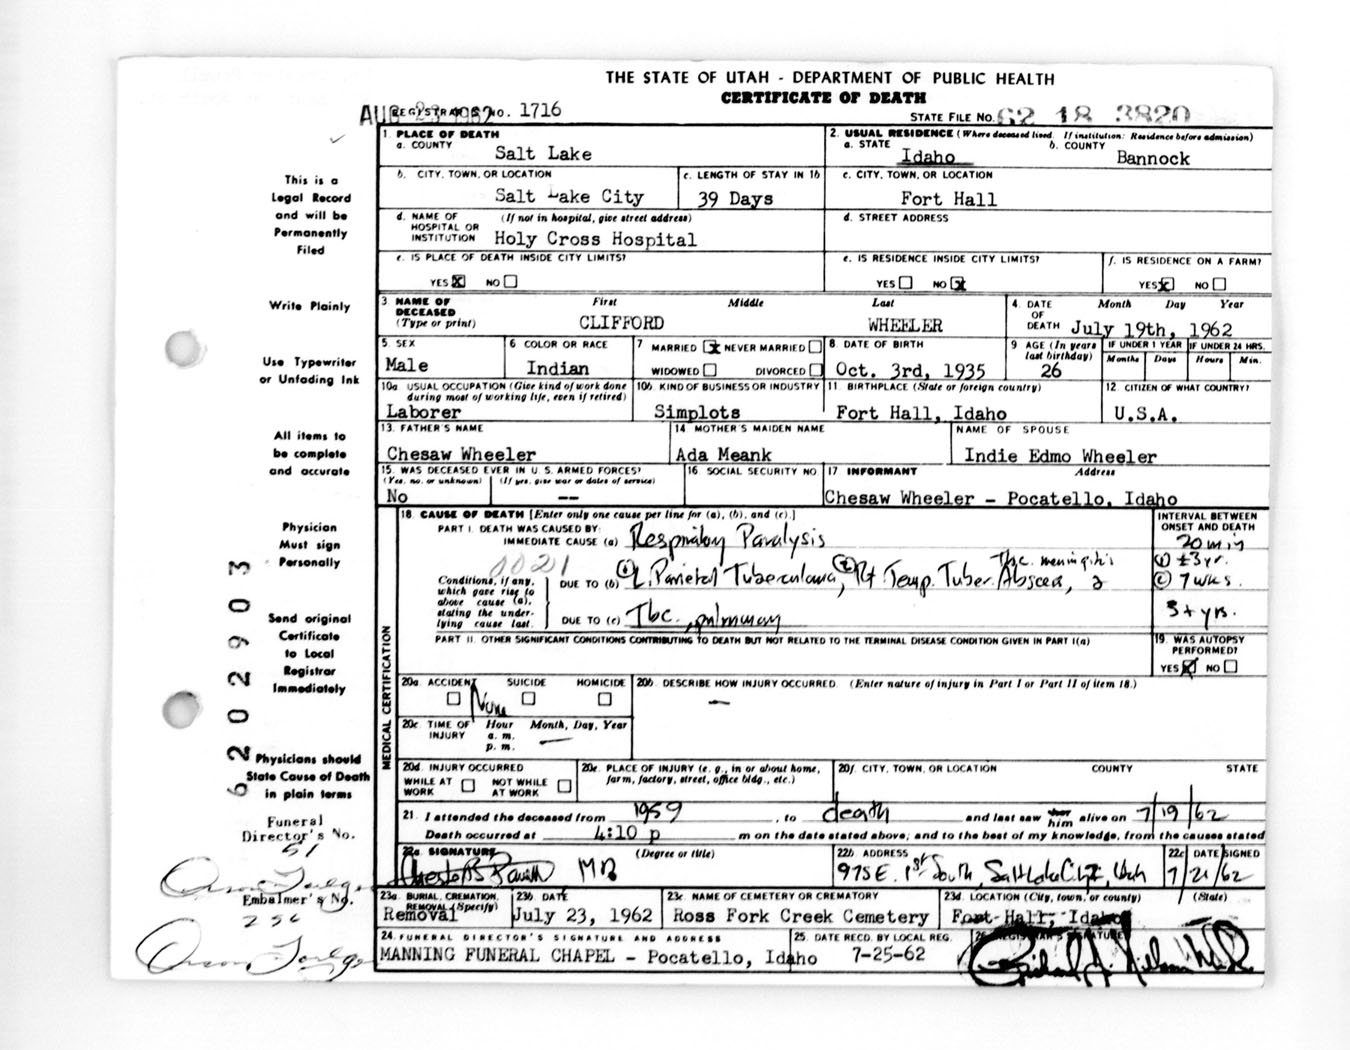 THE STATE OF UTAH - DEPARTMENT OF PUBLIC HEALTH
CERTIFICATE OF DEATH
AUG 23 1962 REGISTRAR'S NO. 1716
STATE FILE NO. 62 18 3820
1. PLACE OF DEATH
a. COUNTY Salt Lake
2. USUAL RESIDENCE (Where deceased lived. If institution: Residence before admission)
a. STATE Idaho b. COUNTY Bannock
b. CITY, TOWN, OR LOCATION Salt Lake City
c. LENGTH OF STAY IN 1b 39 Days
c. CITY, TOWN, OR LOCATION Fort Hall
d. NAME OF HOSPITAL OR INSTITUTION (If not in hospital, give street address) Holy Cross Hospital
d. STREET ADDRESS
e. IS PLACE OF DEATH INSIDE CITY LIMITS?
YES X NO
e. IS RESIDENCE INSIDE CITY LIMITS?
YES NO X
f. IS RESIDENCE ON A FARM?
YES X NO
3 NAME OF DECEASED (Type or print) First Middle Last
CLIFFORD WHEELER
4. DATE OF DEATH Month Day Year
July 19th, 1962
5. SEX Male
6 COLOR OR RACE Indian
7 MARRIED X NEVER MARRIED
WIDOWED DIVORCED
8 DATE OF BIRTH Oct. 3rd, 1935
9 AGE (In years last birthday) 26
IF UNDER 1 YEAR Months Days
IF UNDER 24 HRS. Hours Min.
10a. USUAL OCCUPATION (Give kind of work done during most of working life, even if retired)
Laborer
10b. KIND OF BUSINESS OR INDUSTRY
Simplots
11 BIRTHPLACE (State or foreign country)
Fort Hall, Idaho
12 CITIZEN OF WHAT COUNTRY?
U.S.A.
13. FATHER'S NAME
Chesaw Wheeler
14 MOTHER'S MAIDEN NAME
Ada Meank
NAME OF SPOUSE
Indie Edmo Wheeler
15. WAS DECEASED EVER IN U. S. ARMED FORCES?
(Yes, no, or unknown) (If yes, give war or dates of service)
No --
16 SOCIAL SECURITY NO
17 INFORMANT Address
Chesaw Wheeler - Pocatello, Idaho
18. CAUSE OF DEATH [Enter only one cause per line for (a), (b), and (c).]
PART I. DEATH WAS CAUSED BY:
IMMEDIATE CAUSE (a) Respiratory Paralysis
INTERVAL BETWEEN ONSET AND DEATH
20 min
0021
Tbc. meningitis
Conditions, if any, which gave rise to above cause (a), stating the underlying cause last.
DUE TO (b) (1) L. Parietal Tuberculoma, (2) Rt. Temp. Tuber. Abscess,
(1) ±3 yr.
(2) 7 wks.
DUE TO (c) Tbc., pulmonary
3+ yrs.
PART II. OTHER SIGNIFICANT CONDITIONS CONTRIBUTING TO DEATH BUT NOT RELATED TO THE TERMINAL DISEASE CONDITION GIVEN IN PART I(a)
19. WAS AUTOPSY PERFORMED?
YES X NO
MEDICAL CERTIFICATION
20a. ACCIDENT SUICIDE HOMICIDE
None
20b. DESCRIBE HOW INJURY OCCURRED. (Enter nature of injury in Part I or Part II of item 18.)
—
20c. TIME OF INJURY Hour a. m. p. m. Month, Day, Year
—
20d. INJURY OCCURRED
WHILE AT WORK NOT WHILE AT WORK
20e. PLACE OF INJURY (e. g., in or about home, farm, factory, street, office bldg., etc.)
20f. CITY, TOWN, OR LOCATION COUNTY STATE
21. I attended the deceased from 1959, to death and last saw her him alive on 7/19/62
Death occurred at 4:10 p m on the date stated above; and to the best of my knowledge, from the causes stated
22a. SIGNATURE (Degree or title)
MD
22b. ADDRESS
975 E. 1st South, Salt Lake City, Utah
22c DATE SIGNED
7/21/62
23a. BURIAL, CREMATION, REMOVAL (Specify)
Removal
23b. DATE
July 23, 1962
23c NAME OF CEMETERY OR CREMATORY
Ross Fork Creek Cemetery
23d. LOCATION (City, town, or county) (State)
Fort Hall, Idaho
24. FUNERAL DIRECTOR'S SIGNATURE AND ADDRESS
MANNING FUNERAL CHAPEL - Pocatello, Idaho
25. DATE RECD. BY LOCAL REG.
7-25-62
26. REGISTRAR'S SIGNATURE
This is a
Legal Record
and will be
Permanently
Filed
Write Plainly
Use Typewriter
or Unfading Ink
All items to
be complete
and accurate
Physician
Must sign
Personally
Send original
Certificate
to Local
Registrar
Immediately
Physicians should
State Cause of Death
in plain terms
Funeral
Director's No.
51
Embalmer's No.
256
6202903